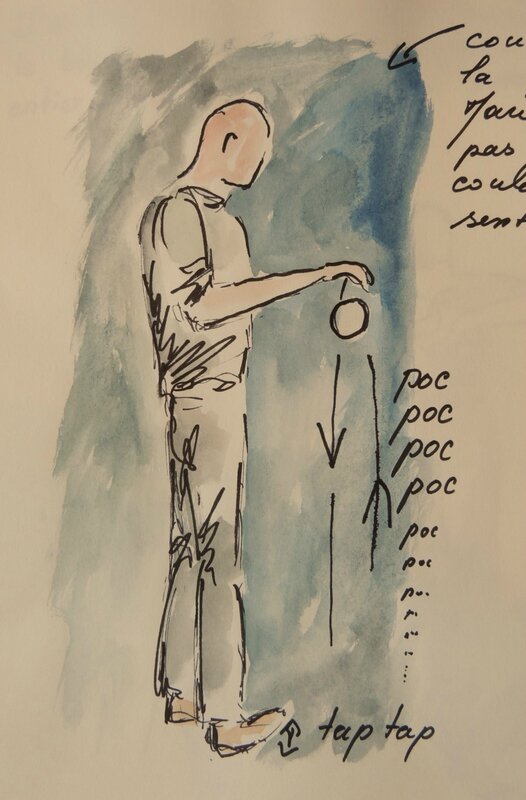 cou
la
pas
coul
sent
poc
poc
poc
poc
poc
poc
tap tap